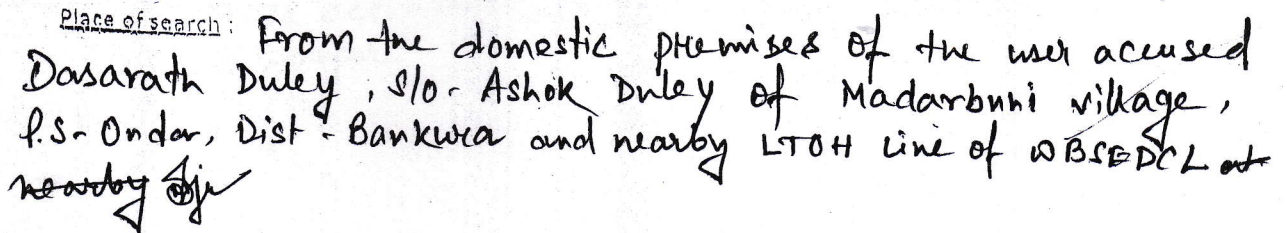 Place of search : From the domestic premises of the user accused
Dasarath Duley, S/o- Ashok Duley of Madarbuni village,
P.S- Onda, Dist - Bankura and nearby LTOH Line of WBSEDCL at
nearby